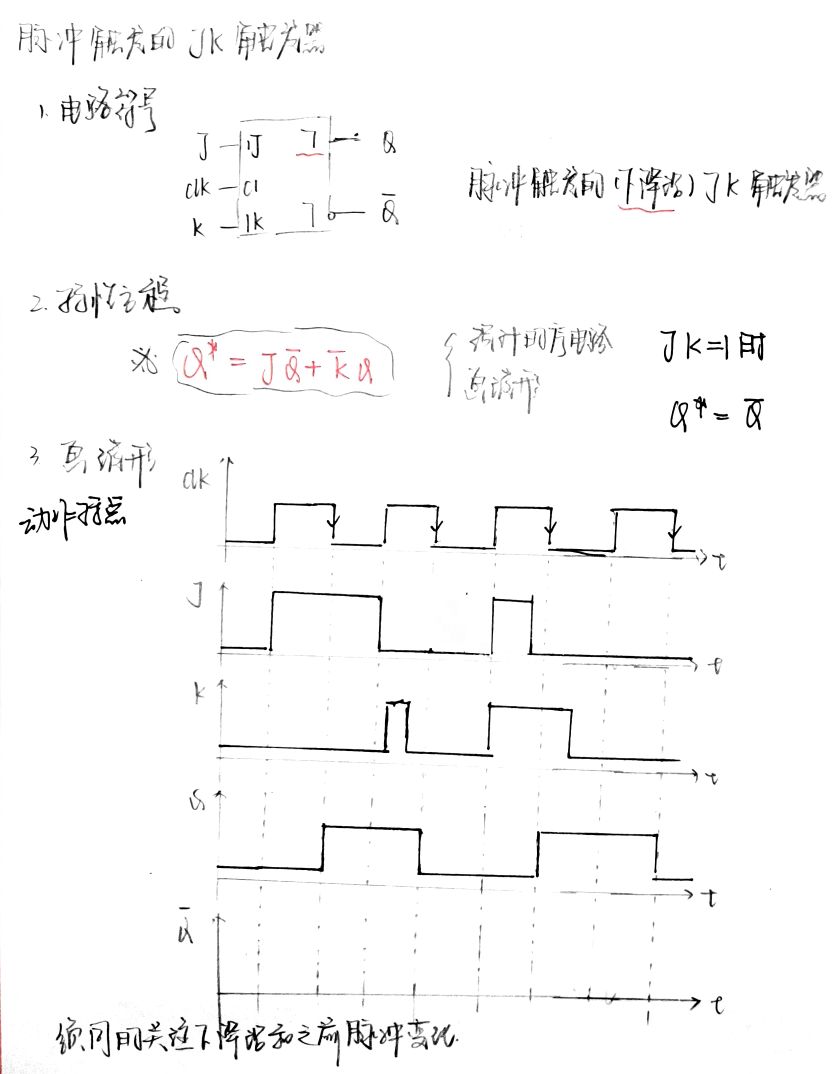 脉冲触发的 JK 触发器
1. 电路符号
J 1J ㄱ Q
clk C1
K 1K ㄱ Q̅
脉冲触发的(下降沿)JK 触发器
2. 特性方程
※ Q* = JQ̅ + K̅Q
设计时序电路
画波形
JK=1时
Q* = Q̅
3 画波形
动作特点
clk
t
J
t
K
t
Q
t
Q̅
t
须同时关注下降沿和之前脉冲变化.